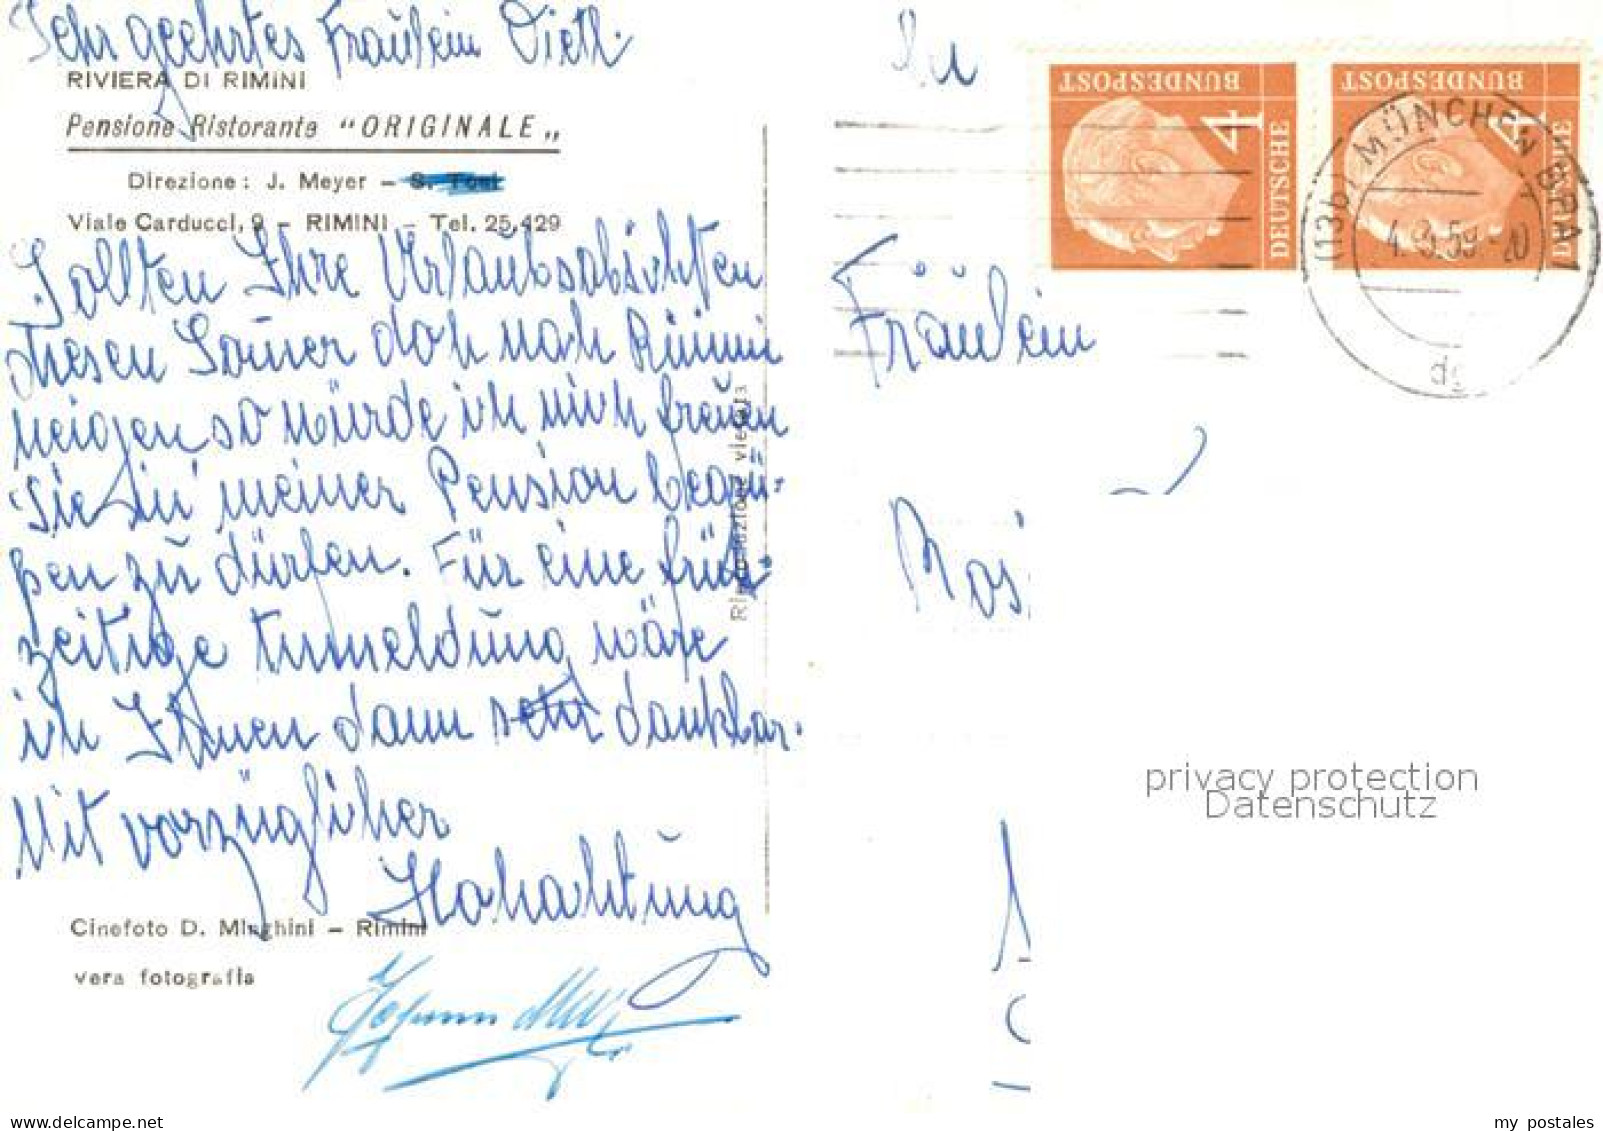 Sehr geehrtes Fräulein Dietl.
RIVIERA DI RIMINI
Pensione Ristorante "ORIGINALE„
Direzione: J. Meyer – S. Tosi
Viale Carducci, 9 – RIMINI – Tel. 25.429
Sollten Ihre Urlaubsabsichten
diesen Som̄er doch nach Rimini
neigen so würde ich mich freuen
Sie in meiner Pension begrü-
ßen zu dürfen. Für eine früh-
zeitige Anmeldung wäre
ich Ihnen dann sehr dankbar.
Mit vorzüglicher
Hochachtung
Cinefoto D. Minghini – Rimini
vera fotografia
Johann Meyer
Riproduzione vietata
An
Fräulein
Ros
DEUTSCHE BUNDESPOST 4
DEUTSCHE BUNDESPOST 4
(13b) MÜNCHEN BPA 1
4.3.59-20
privacy protection
Datenschutz
delcampe.net
my_postales